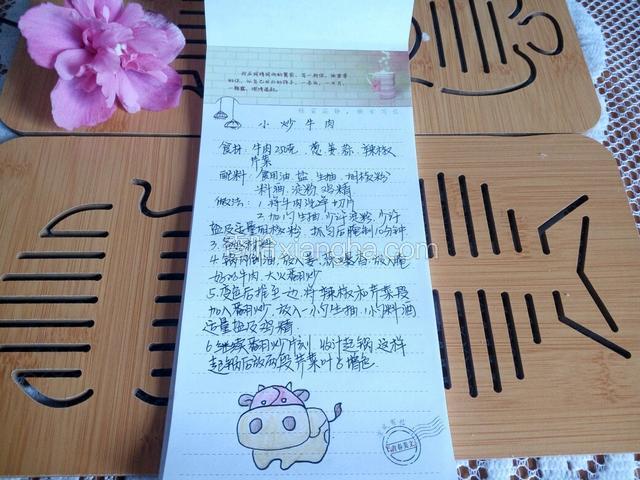 小炒牛肉
食材: 牛肉250克、葱、姜、蒜、辣椒
芹菜
配料: 食用油 盐 生抽 胡椒粉
料酒、淀粉、鸡精
做法: 1. 将牛肉洗净切片
2. 加1勺生抽、少许淀粉、少许
盐及适量胡椒粉 抓匀后腌制10分钟
3. 备好材料
4. 锅内倒油, 放入姜、蒜爆香, 放入腌
好的牛肉, 大火翻炒
5. 变色后推至一边, 将辣椒和芹菜段
加入翻炒, 放入一小勺生抽、小勺料酒
适量盐及鸡精
6. 继续翻炒片刻
起锅后放两段芹菜叶子增色